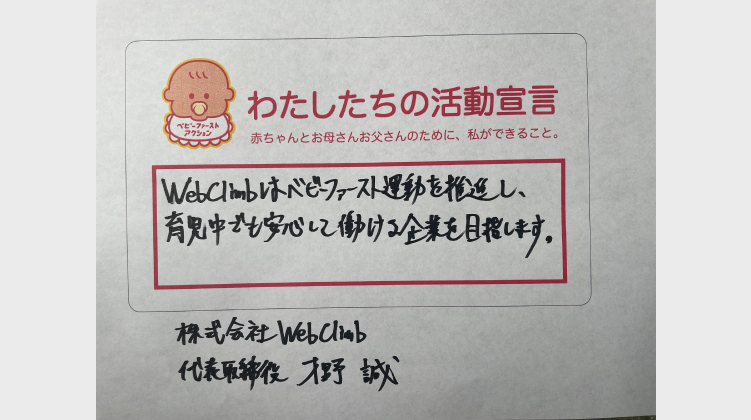 ベビーファースト
アクション
わたしたちの活動宣言
赤ちゃんとお母さんお父さんのために、私ができること。
WebClimbはベビーファースト運動を推進し、
育児中でも安心して働ける企業を目指します。
株式会社WebClimb
代表取締役 才野 誠